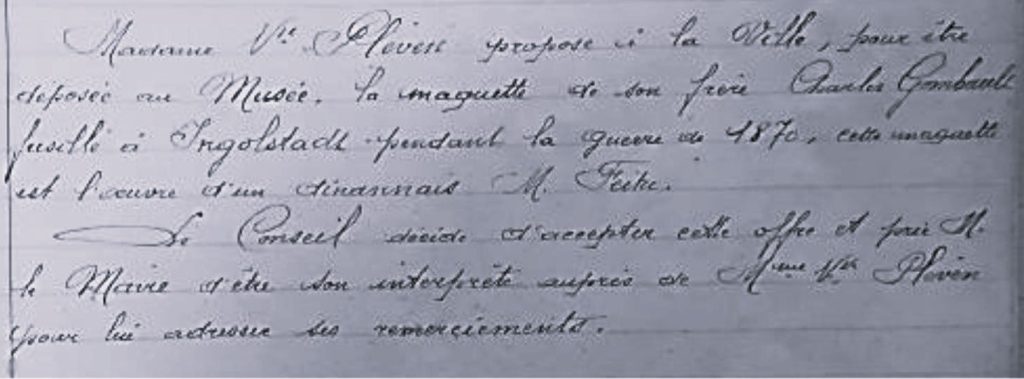 Madame Vve Pléven propose à la Ville, pour être
déposée au Musée, la maquette de son frère Charles Gombault
fusillé à Ingolstadt pendant la guerre de 1870, cette maquette
est l'œuvre d'un dinannais M. Feître.
Le Conseil décide d'accepter cette offre et prie M.
le Maire d'être son interprète auprès de Mme Vve Pléven
pour lui adresser ses remerciements.